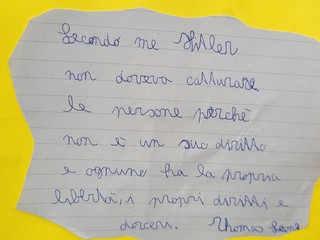 Secondo me Hitler
non doveva catturare
le persone perché
non è un suo diritto
e ognuno ha la propria
libertà, i propri diritti e
doveri. Thomas